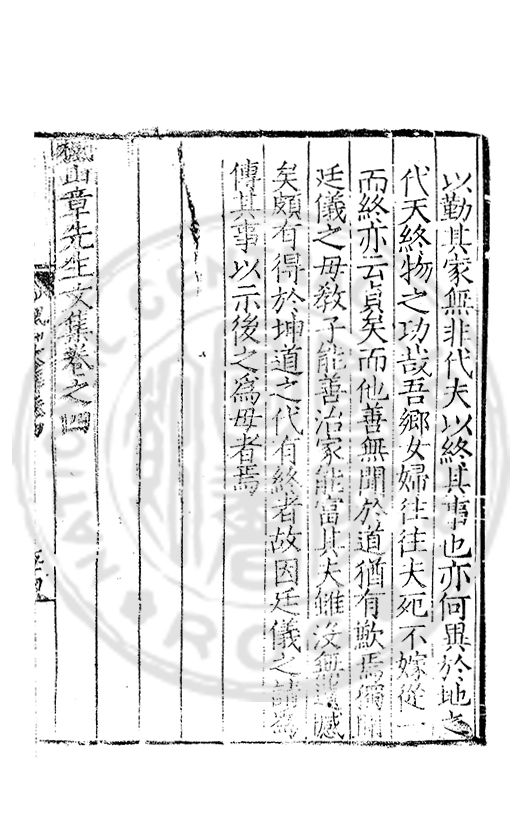 以勤其家無非代夫以終其事也亦何異於地之
代天終物之功哉吾鄉女婦往往夫死不嫁從一
而終亦云貞矣而他善無聞於道猶有歉焉獨聞
廷儀之母教子能善治家能富其夫雖沒無遺憾
矣頗有得於坤道之代有終者故因廷儀之請為
傳其事以示後之為母者焉
楓山章先生文集卷之四